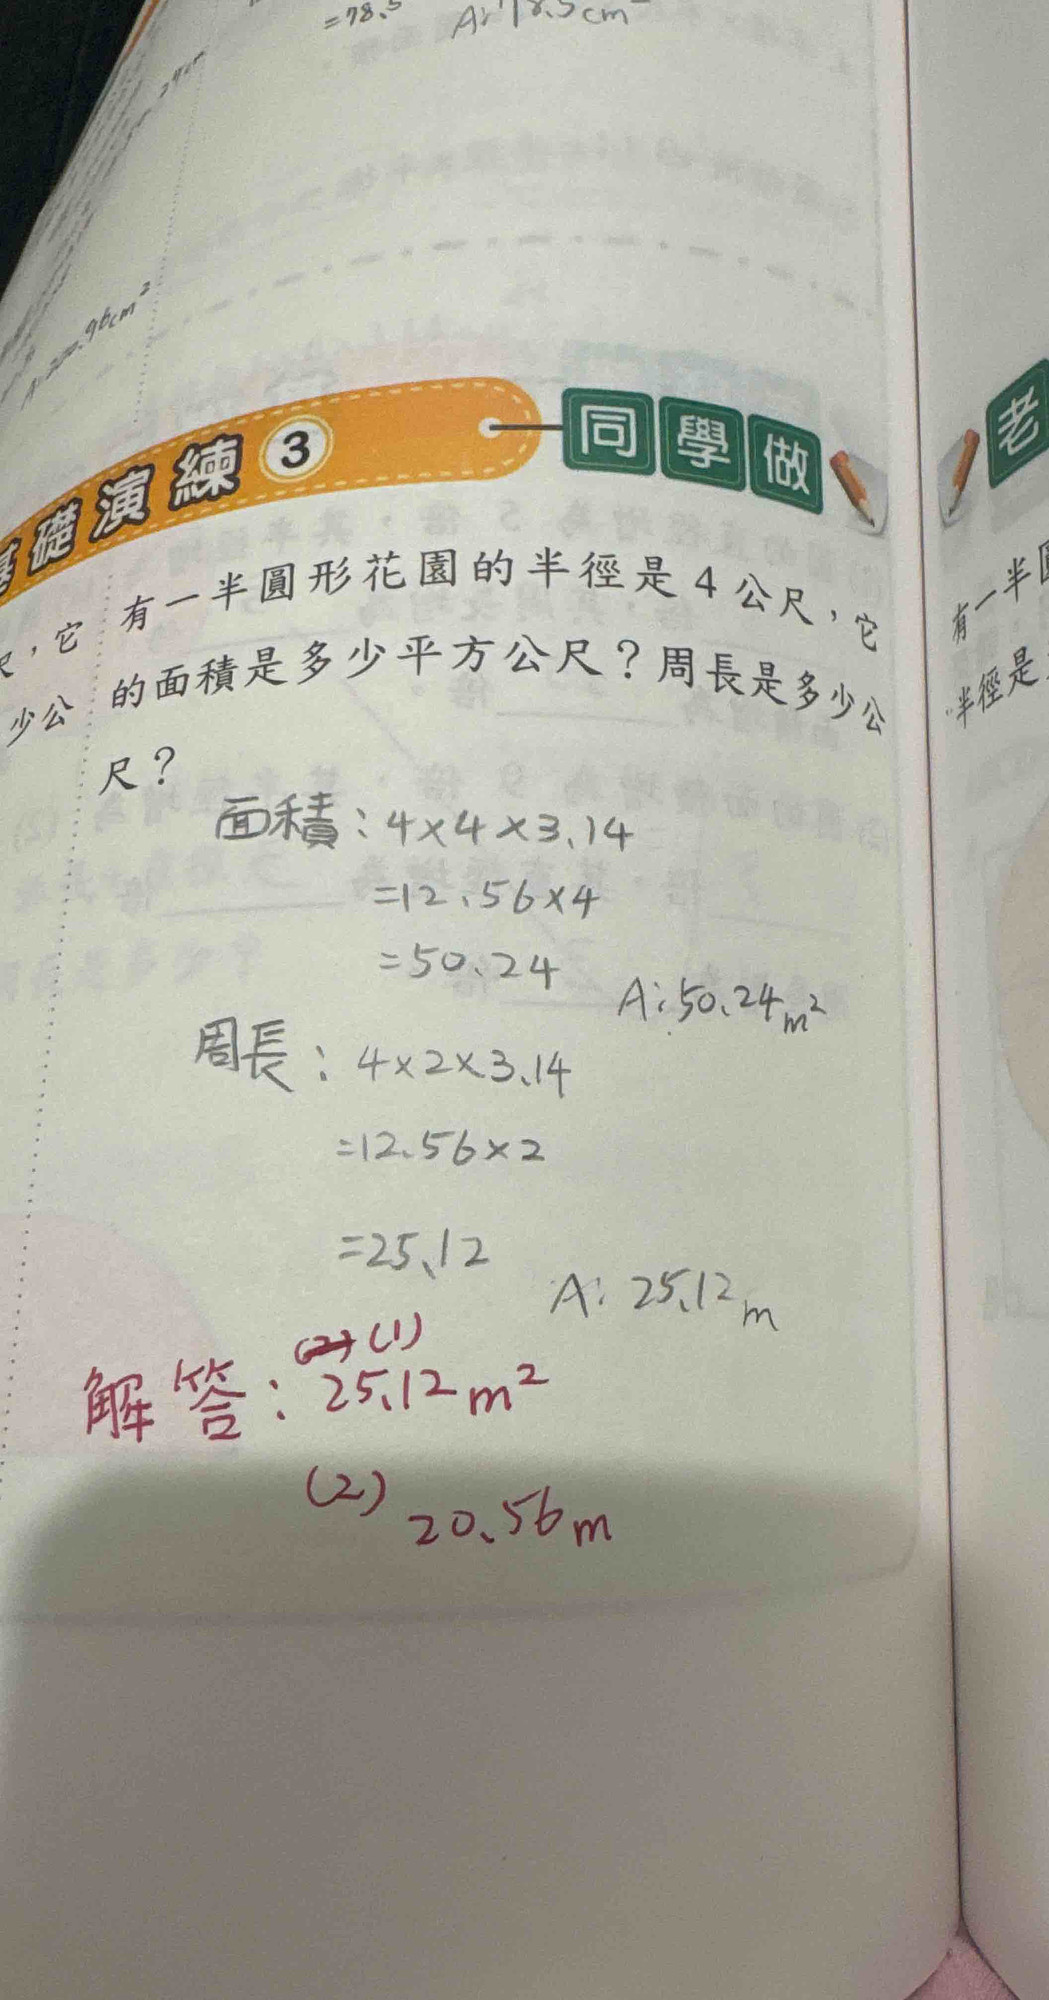 =78.5
A:78.5cm
96cm²
基礎演練 3 同學做
老
有一半圓形花園的半徑是4公尺,它
的面積是多少平方公尺?周長是多少公
尺?
,它
少公
有一半圓
半徑是
面積:4×4×3.14
=12.56×4
=50.24
A:50.24m²
周長:4×2×3.14
=12.56×2
=25.12
A:25.12m
解答:(1)
25.12m²
(2)
20.56m